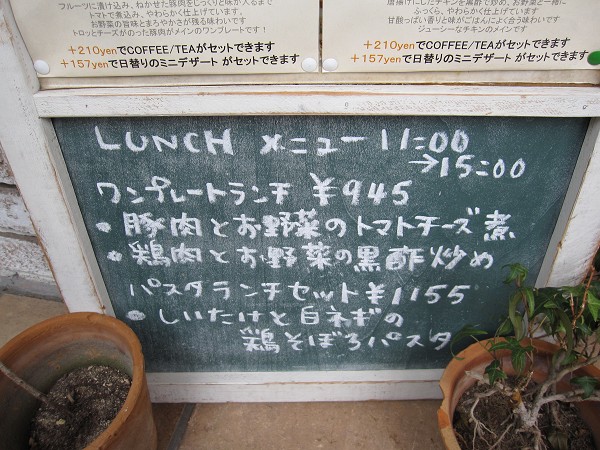 フルーツに漬け込み、ねかせた豚肉をじっくりと味が入るまで
トマトで煮込み、やわらかく仕上げています。
お野菜の旨味とまろやかさが残る味わいです
トロッとチーズがのった豚肉がメインのワンプレートです！
+210yenでCOFFEE/TEAがセットできます
+157yenで日替りのミニデザート がセットできます
唐揚げにしたチキンを黒酢で炒め、お野菜と一緒に
ふっくら、やわらかく仕上げています。
甘酸っぱい香りと味がごはんによく合う味わいです
ジューシーなチキンのメインです
+210yenでCOFFEE/TEAがセットできます
+157yenで日替りのミニデザート がセットできます
LUNCH メニュー 11:00
→15:00
ワンプレートランチ ¥945
・豚肉とお野菜のトマトチーズ煮
・鶏肉とお野菜の黒酢炒め
パスタランチセット¥1155
・しいたけと白ネギの
鶏そぼろパスタ